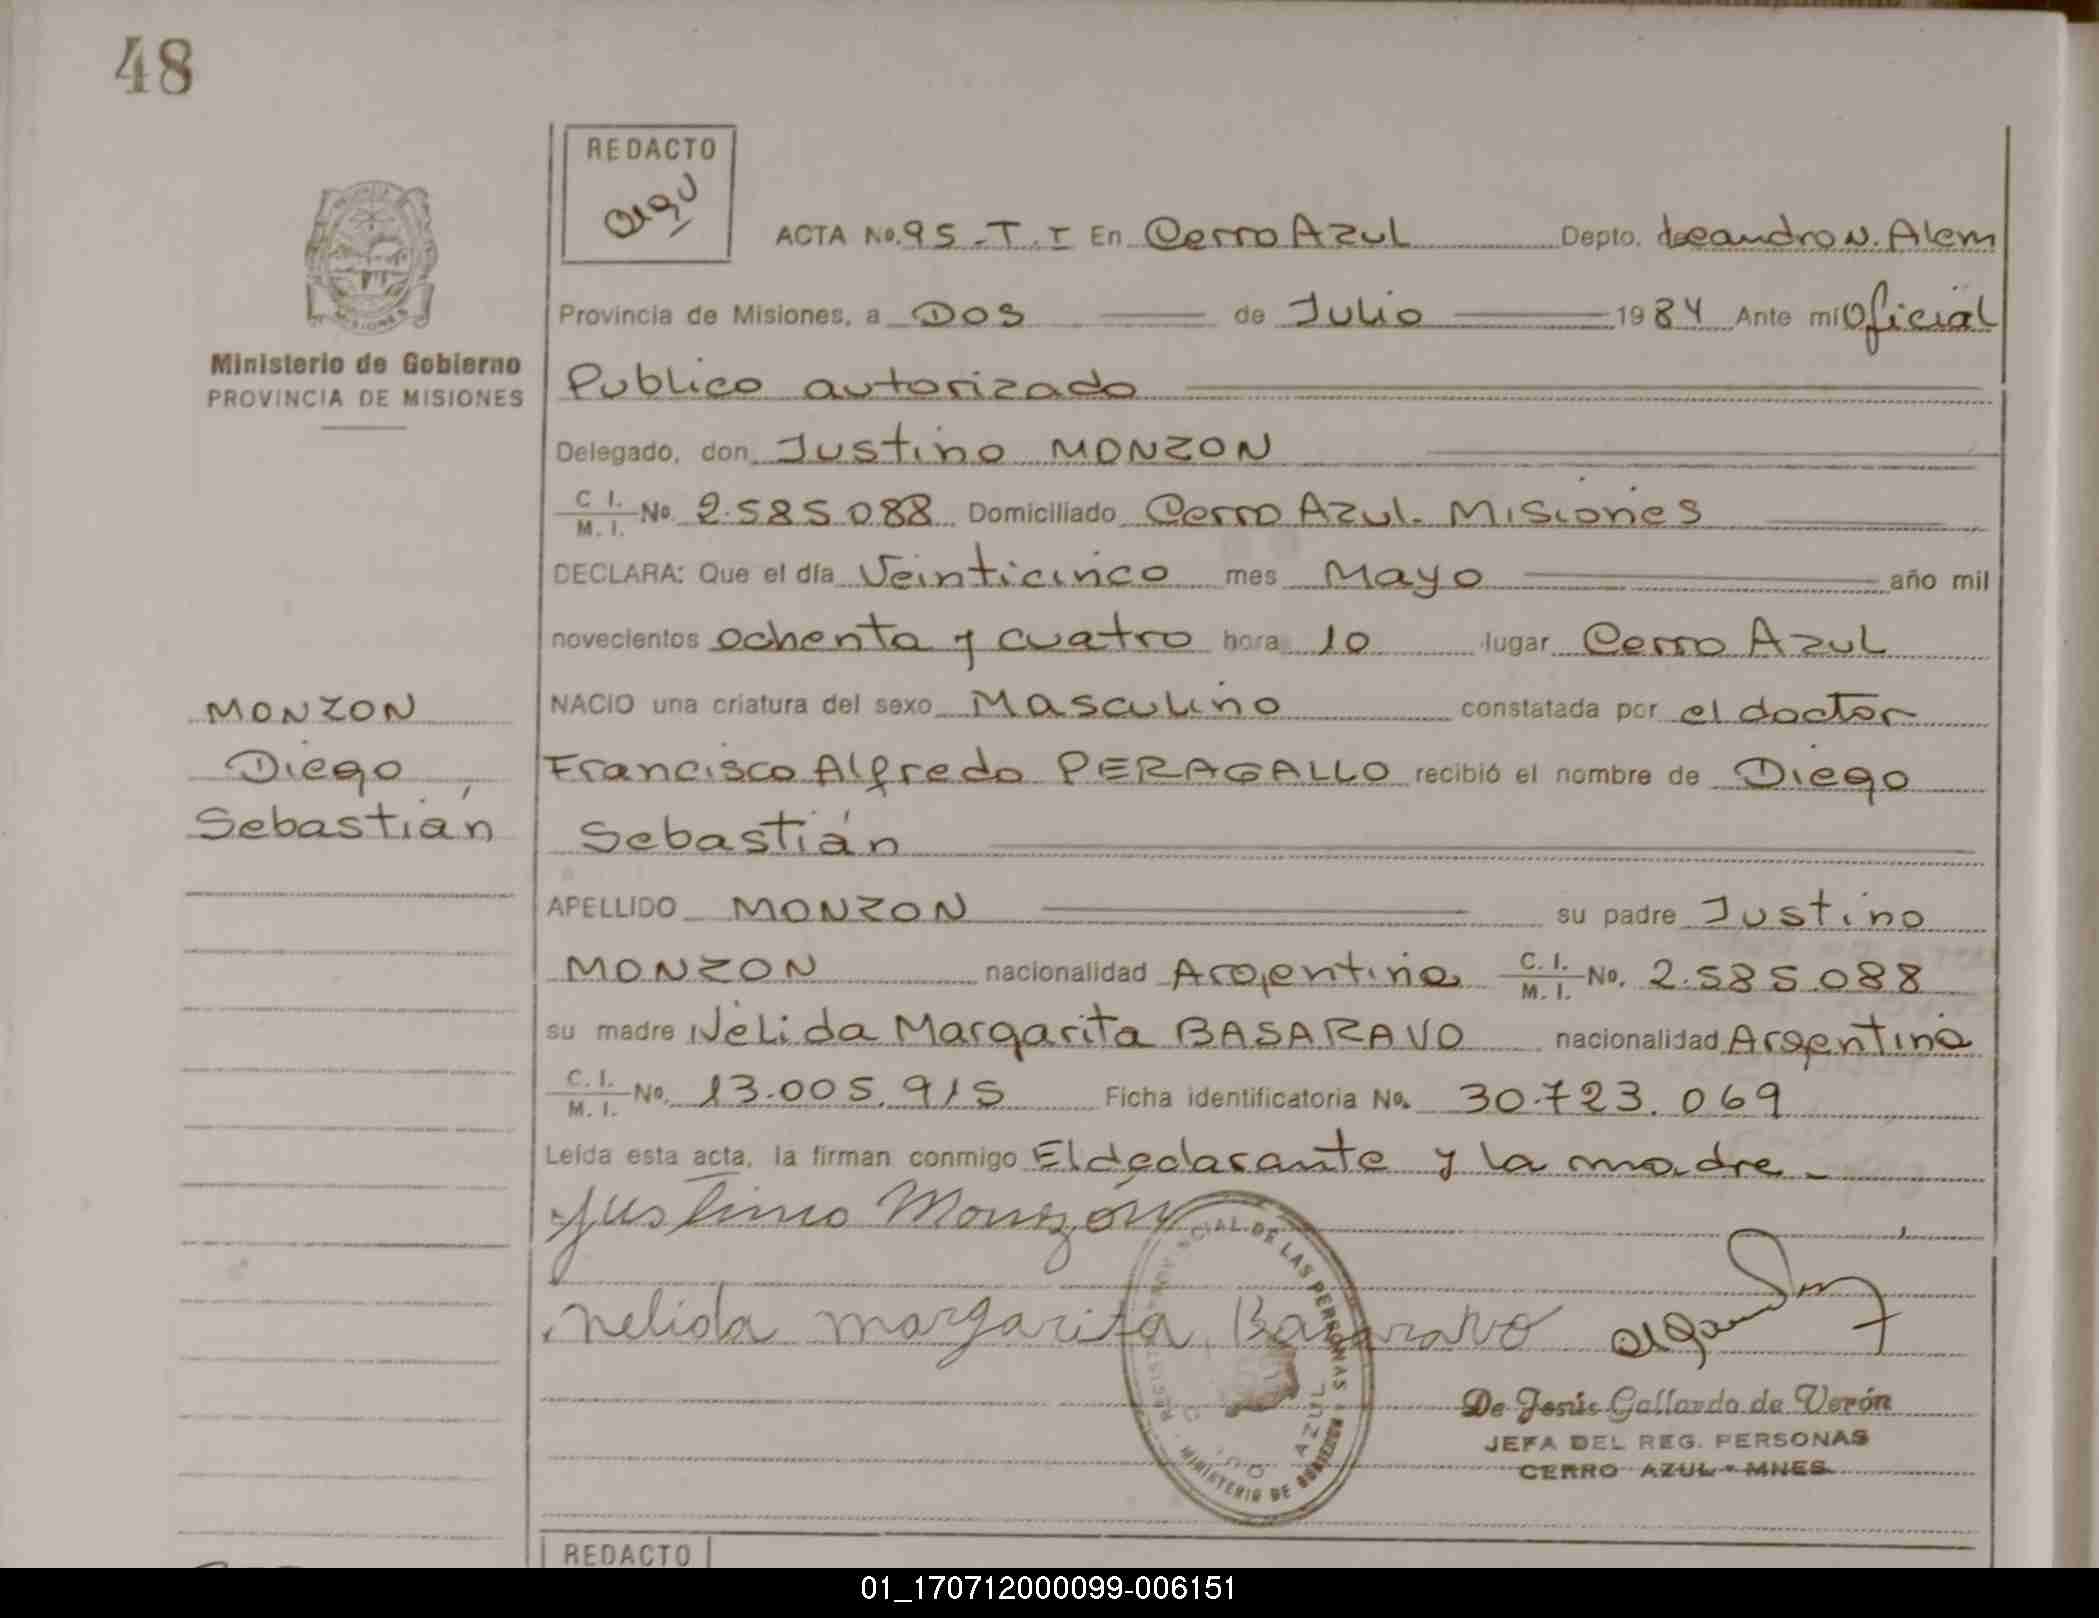 48
REDACTO
MISIONES
Ministerio de Gobierno
PROVINCIA DE MISIONES
ACTA No. 95 - T. I En Cerro Azul Depto. Leandro N. Alem
Provincia de Misiones, a Dos de Julio 1984 Ante mi Oficial
Publico autorizado
Delegado, don Justino MONZON
C. I. / M. I. No. 2.585.088 Domiciliado Cerro Azul. Misiones
DECLARA: Que el día Veinticinco mes Mayo año mil
novecientos ochenta y cuatro hora 10 lugar Cerro Azul
NACIO una criatura del sexo Masculino constatada por el doctor
Francisco Alfredo PERAGALLO recibió el nombre de Diego
Sebastián
MONZON
Diego
Sebastián
APELLIDO MONZON su padre Justino
MONZON nacionalidad Argentina C. I. / M. I. No. 2.585.088
su madre Nélida Margarita BASARAVO nacionalidad Argentina
C. I. / M. I. No. 13.005.915 Ficha identificatoria No. 30.723.069
Leída esta acta, la firman conmigo El declarante y la madre.
Justino Monzón
nelida margarita Basaravo
CIAL DE LAS PERSONAS
MINISTERIO DE GOBIERNO
AZUL
De Jesús Gallardo de Verón
JEFA DEL REG. PERSONAS
CERRO AZUL - MNES.
REDACTO
01_170712000099-006151